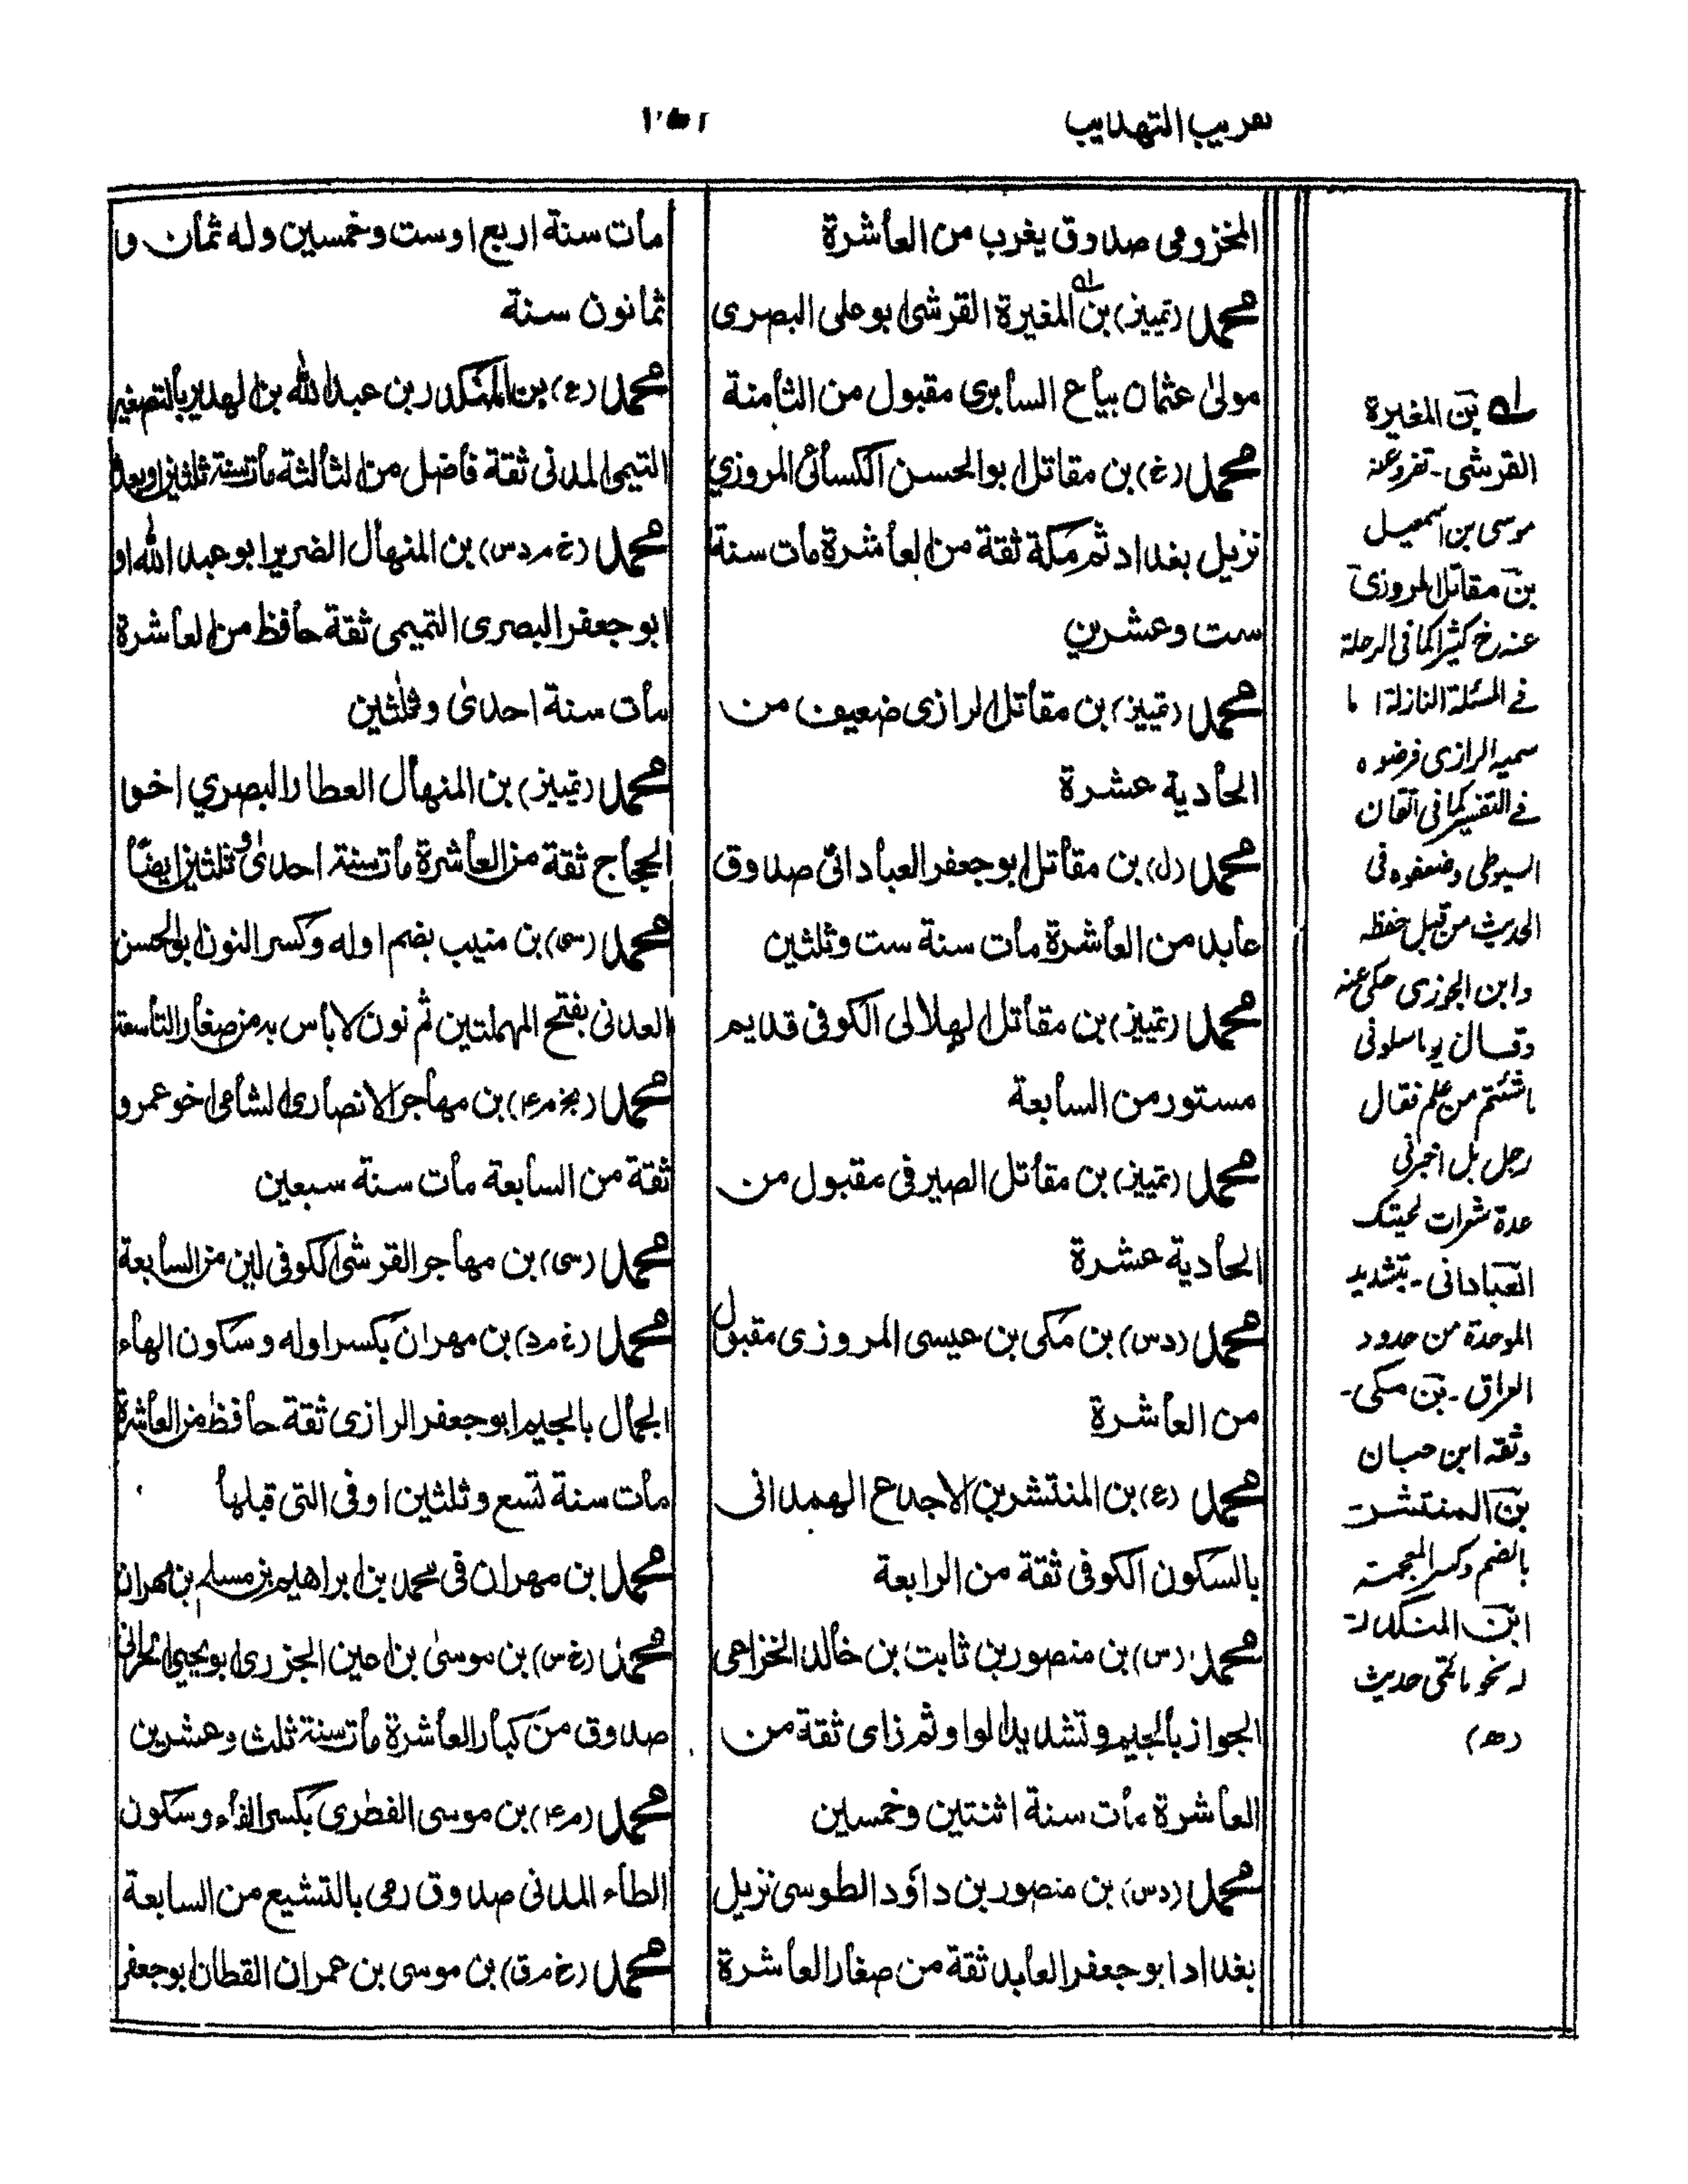 تقريب التهذيب
المخزومی صدوق يغرب من العاشرة
محمد (تمييز) بن المغيرة القرشی ابو علی البصری
مولیٰ عثمان بياع السابری مقبول من الثامنة
محمد (خ) بن مقاتل ابو الحسن الكسائی المروزي
نزيل بغداد ثم مكة ثقة من العاشرة مات سنة
ست وعشرين
محمد (تمييز) بن مقاتل الرازی ضعيف من
الحادية عشرة
محمد (ل) بن مقاتل ابو جعفر العبادانی صدوق
عابد من العاشرة مات سنة ست وثلثين
محمد (تمييز) بن مقاتل الهلالی الكوفی قديم
مستور من السابعة
محمد (تمييز) بن مقاتل الصيرفی مقبول من
الحادية عشرة
محمد (دس) بن مكی بن عيسی المروزی مقبول
من العاشرة
محمد (ع) بن المنتشر بن الاجدع الهمدانی
بالسكون الكوفی ثقة من الرابعة
محمد (س) بن منصور بن ثابت بن خالد الخزاعی
الجواز بالجيم وتشديد الواو ثم زای ثقة من
العاشرة مات سنة اثنتين وخمسين
محمد (دس) بن منصور بن داؤد الطوسی نزيل
بغداد ابو جعفر العابد ثقة من صغار العاشرة
مات سنة اربع او ست وخمسين وله ثمان و
ثمانون سنة
محمد (ع) بن المنكدر بن عبد الله بن الهدير بالتصغير
التيمی المدنی ثقة فاضل من الثالثة مات سنة ثلثين او بعدها
محمد (خ م د س) بن المنهال الضرير ابو عبد الله او
ابو جعفر البصری التميمی ثقة حافظ من العاشرة
مات سنة احدیٰ وثلٰثين
محمد (تمييز) بن المنهال العطار البصري اخو
الحجاج ثقة من العاشرة مات سنة احدیٰ و ثلثين ايضًا
محمد (سی) بن منيب بضم اوله وكسر النون ابو الحسن
العدنی بفتح المهملتين ثم نون لا باس به من صغار التاسعة
محمد (بخ م ۴) بن مهاجر الانصاری الشامی اخو عمرو
ثقة من السابعة مات سنة سبعين
محمد (سی) بن مهاجر القرشی الكوفی لين من السابعة
محمد (خ م د) بن مهران بكسر اوله وسكون الهاء
الجمال بالجيم ابو جعفر الرازی ثقة حافظ من العاشرة
مات سنة تسع وثلثين او فی التی قبلها
محمد بن مهران فی محمد بن ابراهيم بن مسلم بن مهران
محمد (خ س) بن موسیٰ بن اعين الجزری ابو يحيی الحرانی
صدوق من كبار العاشرة مات سنة ثلث وعشرين
محمد (م ۴) بن موسی الفطری بكسر الفاء وسكون
الطاء المدنی صدوق رمی بالتشيع من السابعة
محمد (خ م ق) بن موسی بن عمران القطان ابو جعفر
له بن المغيرة
القرشی - تفرد عنه
موسی بن اسمعيل
بن مقاتل المروزی
عنه خ كثيرا كما فی الرحلة
فے المسئلة النازلة اما
سميه الرازی فرضوه
فے التفسير كما فی اتقان
السيوطی وضعفوه فی
الحديث من قبل حفظه
وابن الجوزی حكی عنه
وقال يوما سلونی
ما شئتم من علم فقال
رجل بل اخبرنی
عدة شعرات لحيتك
العبادانی - بتشديد
الموحدة من حدود
العراق - بن مكی -
وثقه ابن حبان
بن المنتشر -
بالضم وكسر المعجمة
ابن المنكدر -
له نحو مائتی حديث
(ھ)